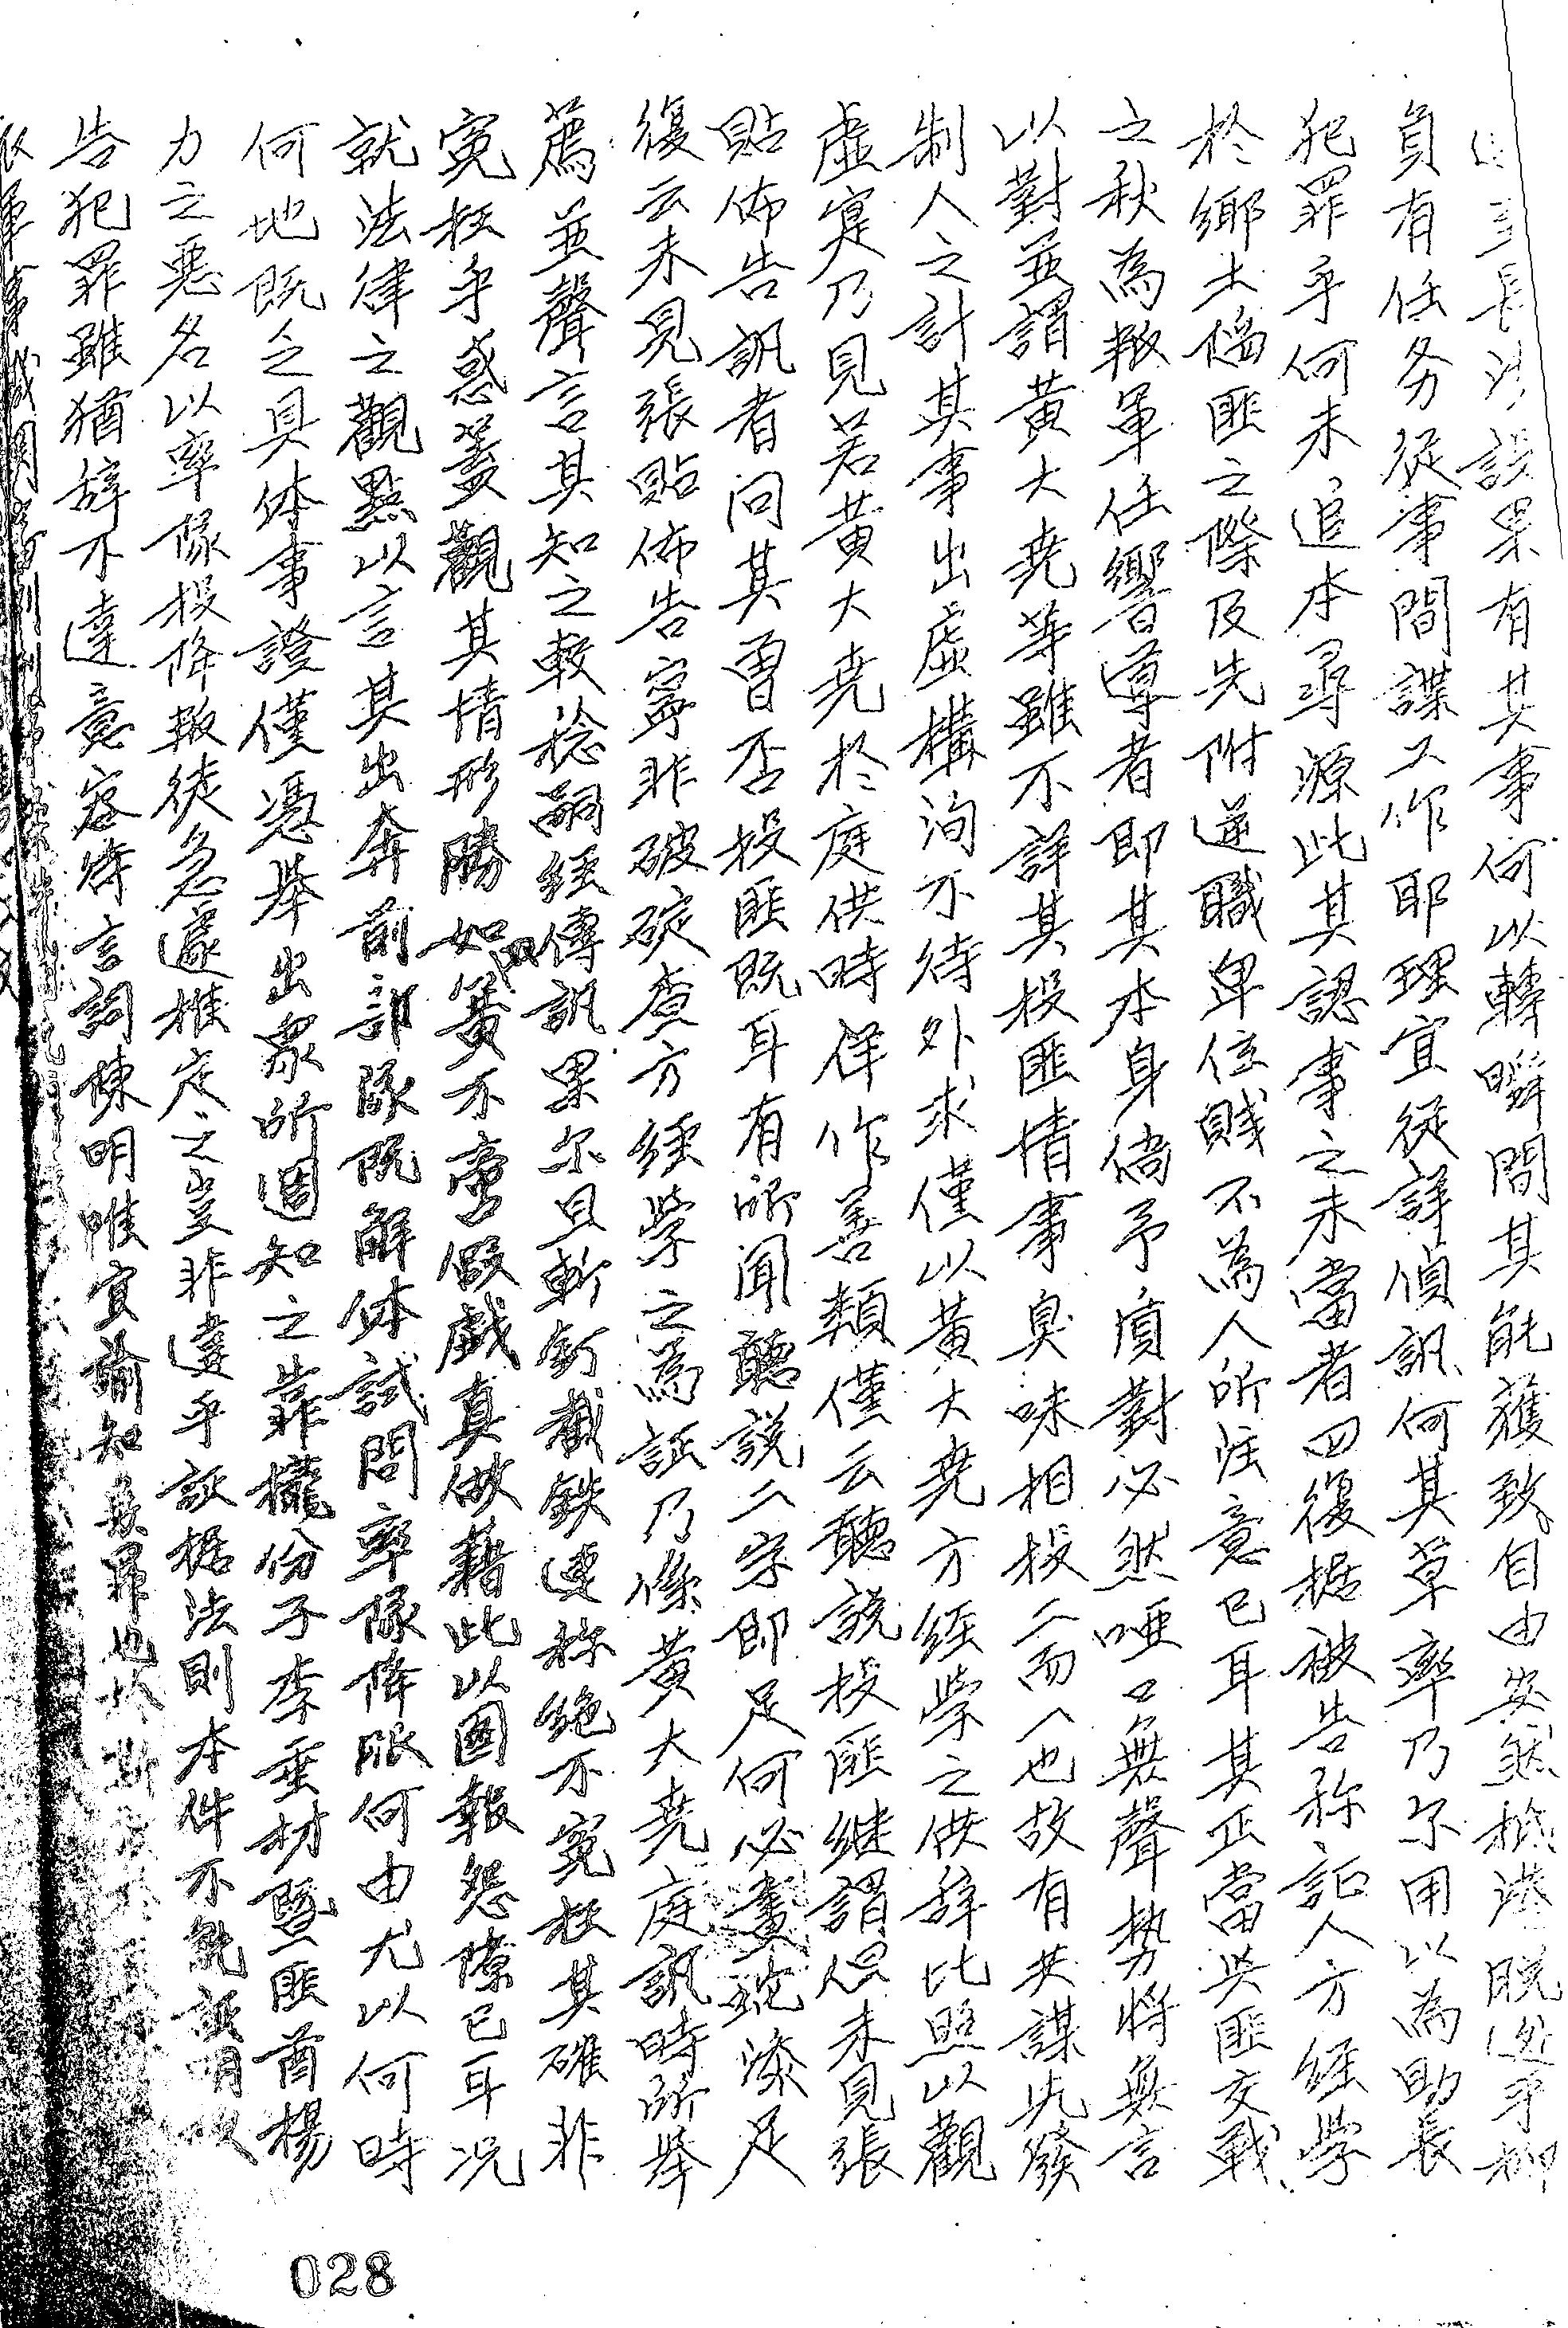 長 誤果有其事何以轉瞬間其能獲致自由安然 脫逃乎抑
負有任务從事間諜工作耶理宜從詳偵訊何其草率乃尔用以為助長
犯罪乎何未追本尋源此其認事之未當者四復据被告称証人方經学
於鄉土偽匪之際及先附逆職卑位賤不為人所注意已耳其正當與匪交戰
之秋為叛軍任嚮導者即其本身倘予質對必然啞口無聲势將無言
以對並謂黃大堯等雖不詳其投匪情事臭味相投二而一也故有共謀先發
制人之計其事出虛構洵不待外求僅以黃大堯方經学之供辞比照以觀
虛寔乃見若黃大堯於庭供時佯作善類僅云聽說投匪继謂但未見張
貼佈告訊者问其曾否投匪既耳有所闻聽說二字即足何必畫蛇添足
復云未見張貼佈告寧非破碇查方經学之為証乃係黃大堯庭訊時所举
薦並聲言其知之較稔嗣經傳訊果尔且斬釘截鉄連称絶不寃枉其確非
寃枉乎惑蓋觀其情形勝如双簧不啻假戲真做藉此以圖報怨隙已耳况
就法律之觀點以言其出奔前部隊既解体試問率隊降服何由尤以何時
何地既乏具体事證僅憑举出眾所週知之靠攏份子李垂材暨匪酋楊
力之惡名以率隊投降叛徒急遽推定之豈非違乎証据法則本件不能証明被
告犯罪雖猶辞不達意容待言詞陳明惟宜諭知無罪也
028